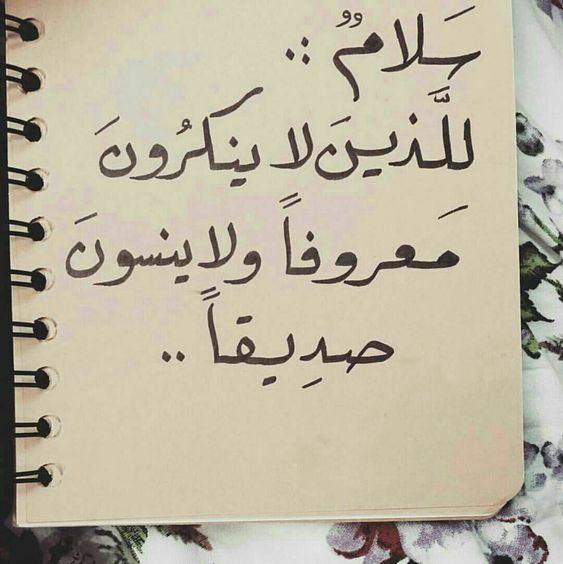 سَلامٌ ..
للَّذينَ لا ينكرُونَ
مَعروفاً ولا ينسونَ
صدِيقاً ..